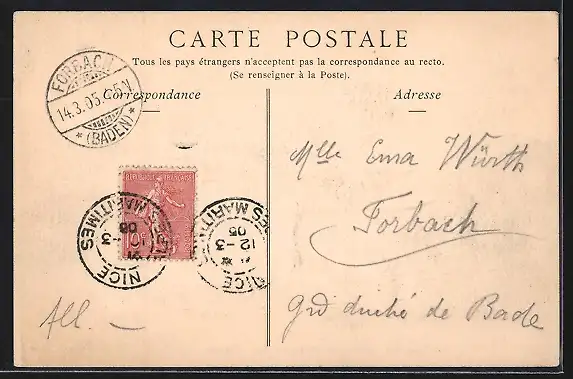 CARTE POSTALE
Tous les pays étrangers n'acceptent pas la correspondance au recto.
(Se renseigner à la Poste).
Correspondance
Adresse
FORBACH
14.3.05. 5-6N
* (BADEN) *
REPUBLIQUE FRANÇAISE
10F
NICE
12 -3
05
ALPES MARITIMES
NICE
12 -3
05
ALPES MARITIMES
Mlle Ema Würth
Forbach
grd duché de Bade
All. —